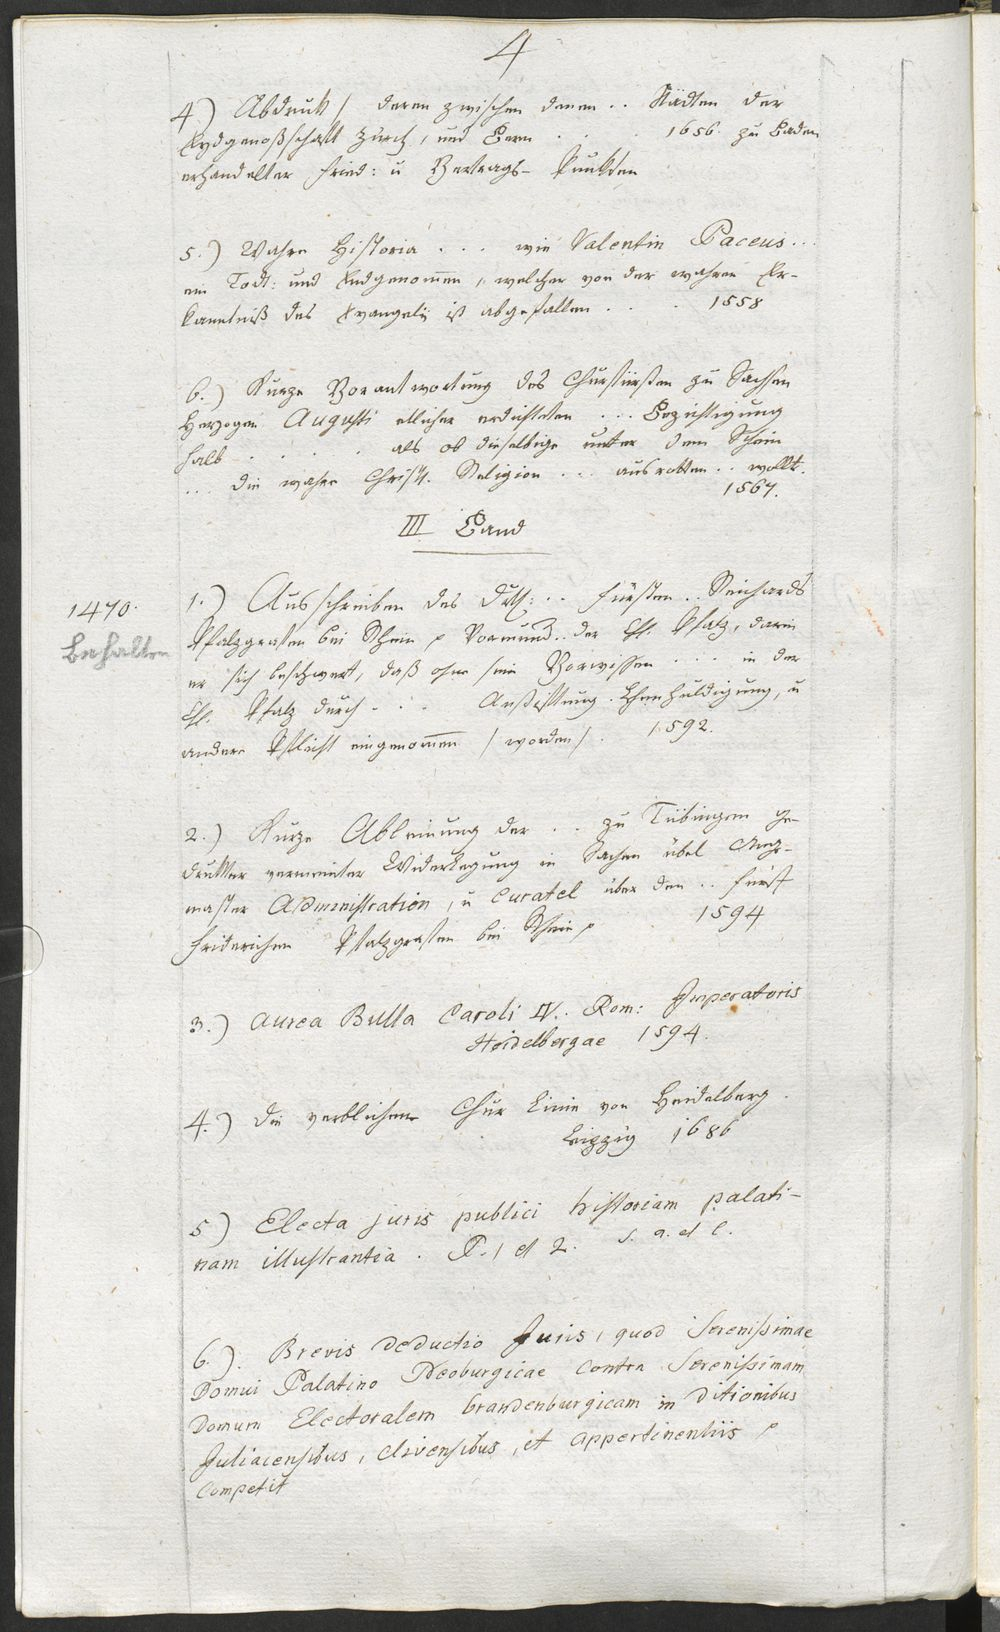 4
4.) Abdruck / deren zwischen denen .. Städten der
Eydgenoßschaft Zürch, und Bern . . 1656. zu Baden
erhandelter Fried: u Vertrags- Punkten
5.) Wahre Historia . . . wie Valentin Paceus ...
ein Todt: und End genommen, welcher von der wahren Er-
kanntniß des Evangelij ist abgefallen . . . 1558
6.) Kurze Verantwortung des Churfürsten zu Sachsen
Herzogen Augusti etlicher erdichteten . . . Bezüchtigung
halb . . . . . als ob dieselbige unter dem Schein
... die wahre Christl. Religion . . . ausrotten .. wollt.
1567.
III Band
1470.
Behalten
1.) Ausschreiben des Dchl: .. Fürsten .. Reichards
Pfalzgrafen bei Rhein p Vormund .. der Chf. Pfalz, darin
er sich beschwert, daß ohne sein Vorwissen . . . in der
Chf. Pfalz durch . . . Erbhuldigung, u
andere Pflicht eingenommen / worden / . 1592.
2.) Kurze Ableinung der . . zu Tübingen ge-
druckter vermeinter Widerlegung in Sachen übel Ange-
master Administration, u Curatel über den .. Fürst
Friderichen Pfalzgrafen bei Rhein p 1594
3.) Aurea Bulla Caroli IV. Rom: Imperatoris
Heidelbergae 1594.
4.) Die verblichene Chur Linie von Heidelberg.
Leipzig 1686
5) Electa juris publici historiam palati-
nam illustrantia. P. 1 et 2. s. a. et l.
6.). Brevis deductio Juris, quod Serenissimae
Domui Palatino Neoburgicae contra Serenissimam
Domum Electoralem brandenburgicam in ditionibus
Juliacensibus, clivensibus, et appertinentiis p
competit